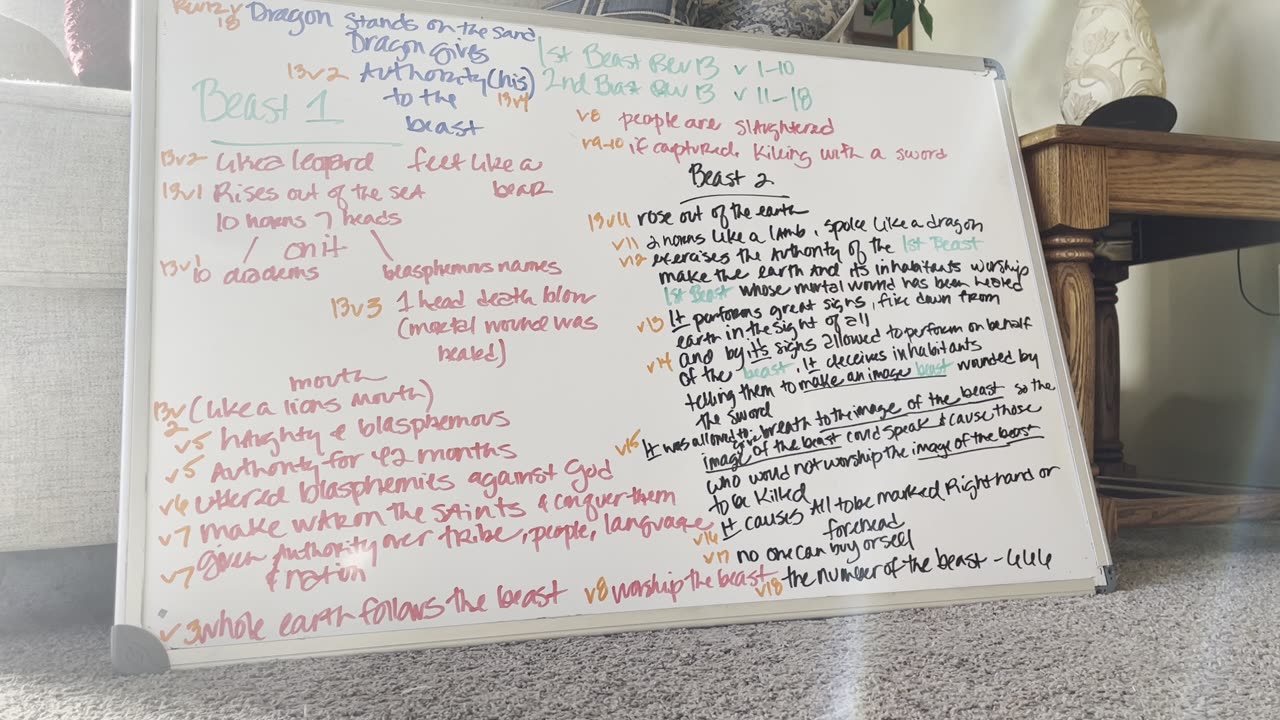 Rev 12 v 18 Dragon stands on the sand
Dragon gives
13v2 Authority (his)
to the 13v4
beast
1st Beast Rev 13 v 1-10
2nd Beast Rev 13 v 11-18
Beast 1
13v2 like a leopard feet like a bear
13v1 Rises out of the sea
10 horns 7 heads
on it
13v1 10 diadems blasphemous names
13v3 1 head death blow
(mortal wound was
healed)
mouth
13v2 (like a lions mouth)
v5 haughty & blasphemous
v5 Authority for 42 months
v6 uttered blasphemies against God
v7 make war on the saints & conquer them
v7 given Authority over tribe, people, language
& nation
v3 whole earth follows the beast v8 worship the beast
v8 people are slaughtered
v9-10 if captured, killing with a sword
Beast 2
13v11 rose out of the earth
v11 2 horns like a lamb, spoke like a dragon
v12 exercises the Authority of the 1st Beast
make the earth and its inhabitants worship
1st Beast whose mortal wound has been healed
v13 It performs great signs, fire down from
earth in the sight of all
v14 and by its signs allowed to perform on behalf
of the beast, It deceives inhabitants
telling them to make an image beast wounded by
the sword
v15 It was allowed to give breath to the image of the beast so the
image of the beast could speak & cause those
who would not worship the image of the beast
to be killed
v16 It causes All to be marked Right hand or
forehead
v17 no one can buy or sell
v18 the number of the beast - 666